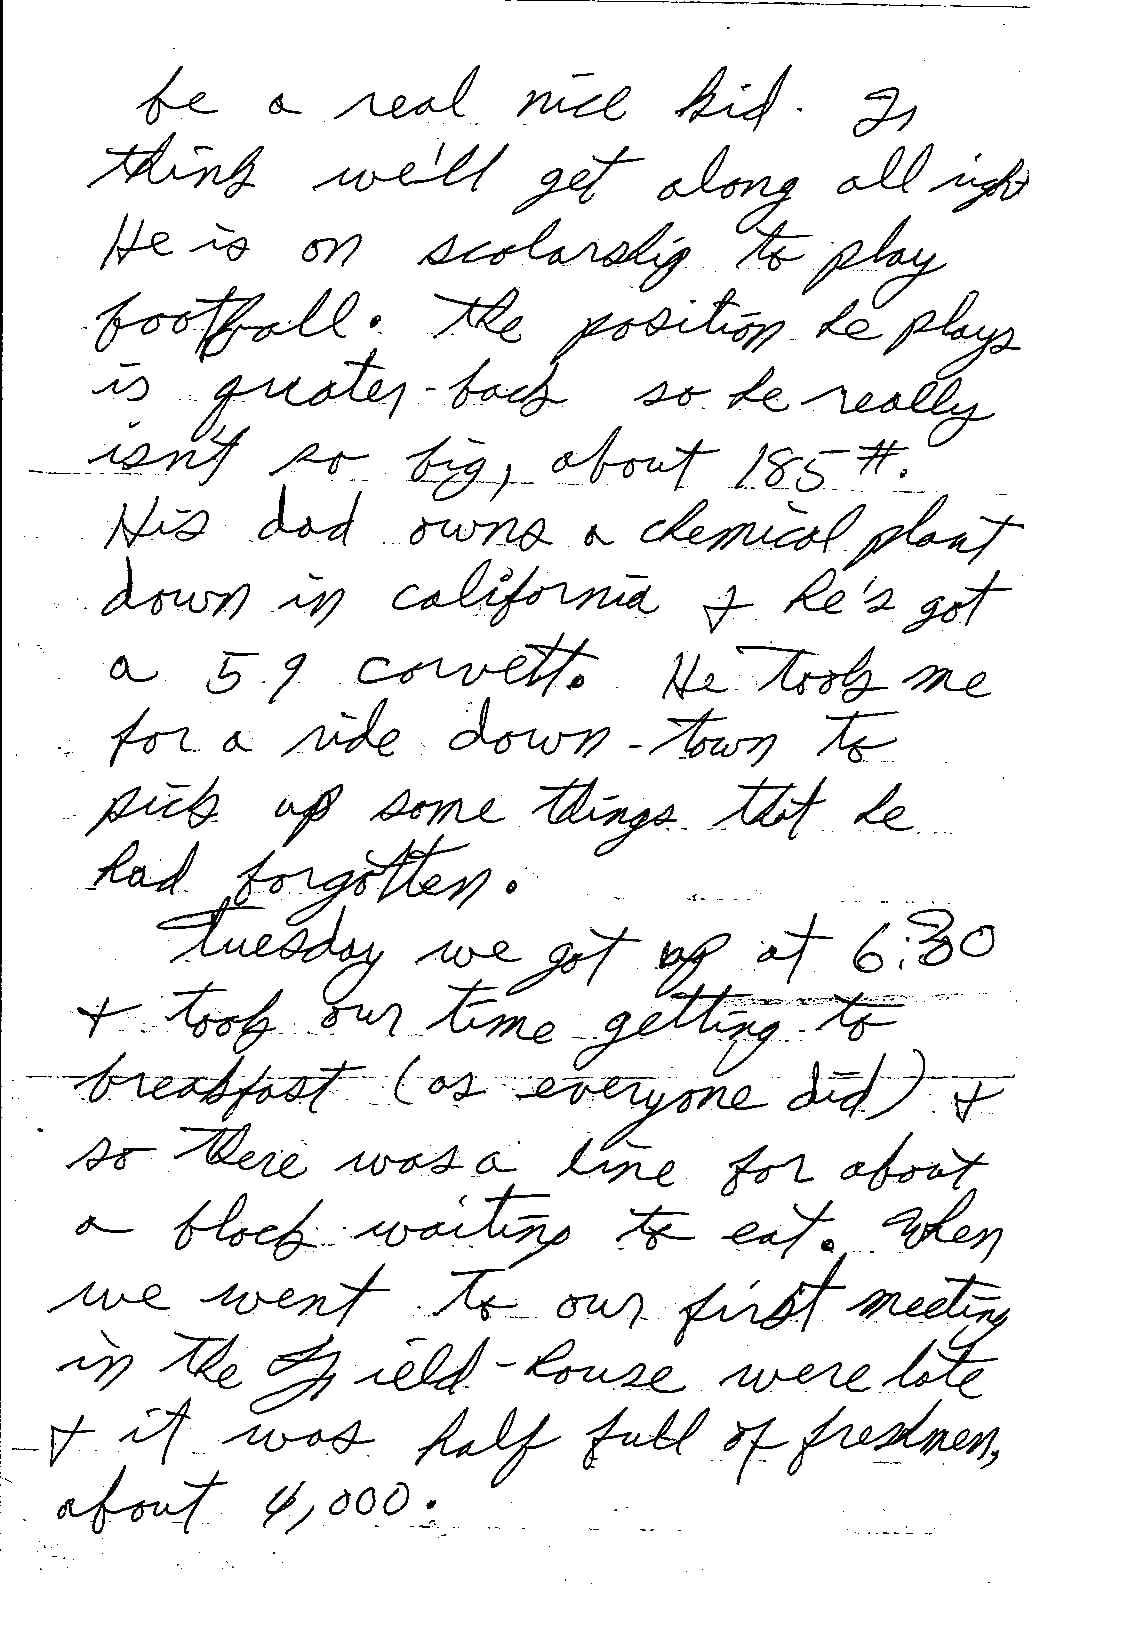 be a real nice kid. I
think we'll get along all right
He is on scolarship to play
football. The position he plays
is quater-back so he really
isn't so big, about 185 #.
His dad owns a chemical plant
down in california & he's got
a 59 corvett. He took me
for a ride down-town to
pick up some things that he
had forgotten.
Tuesday we got up at 6:30
& took our time getting to
breakfast (as everyone did) &
so there was a line for about
a block waiting to eat. When
we went to our first meeting
in the Field-house were late
& it was half full of freshmen,
about 4,000.